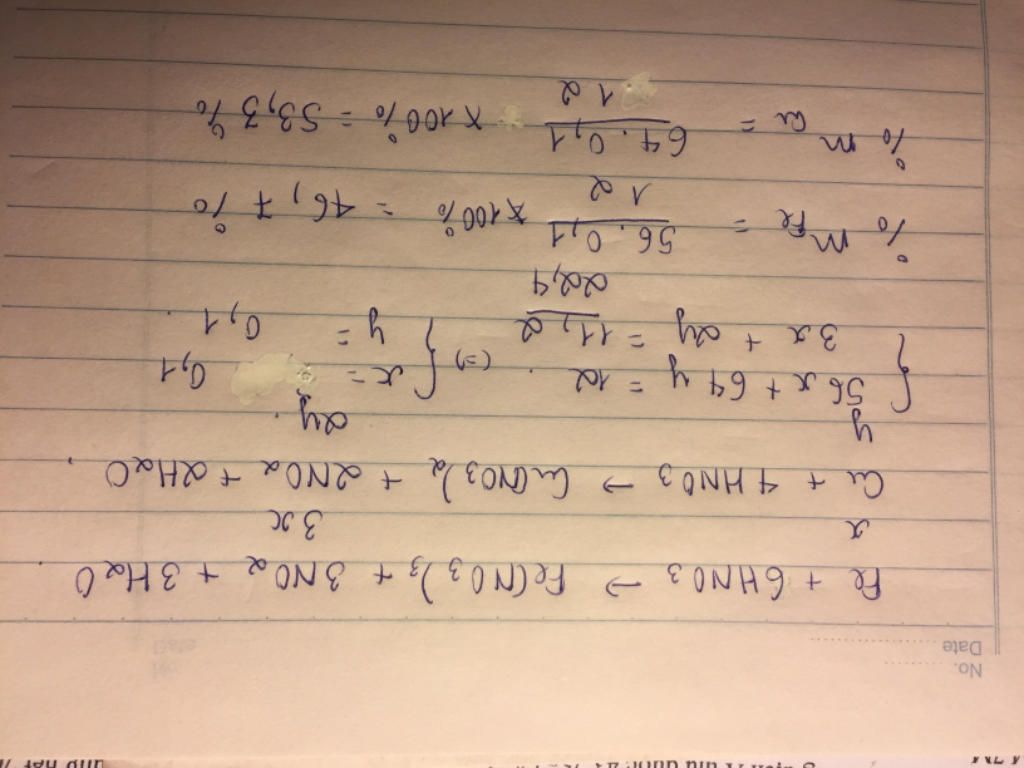 No. ........
Date ....................
Fe + 6HNO3 → Fe(NO3)3 + 3NO2 + 3H2O.
x 3x
Cu + 4HNO3 → Cu(NO3)2 + 2NO2 + 2H2O.
y 2y.
{ 56x + 64y = 12. (=) { x = 0,1
3x + 2y = 11,2/22,4 y = 0,1.
% mFe = 56.0,1/12 x 100% = 46,7%
% mCu = 64.0,1/12 x 100% = 53,3%